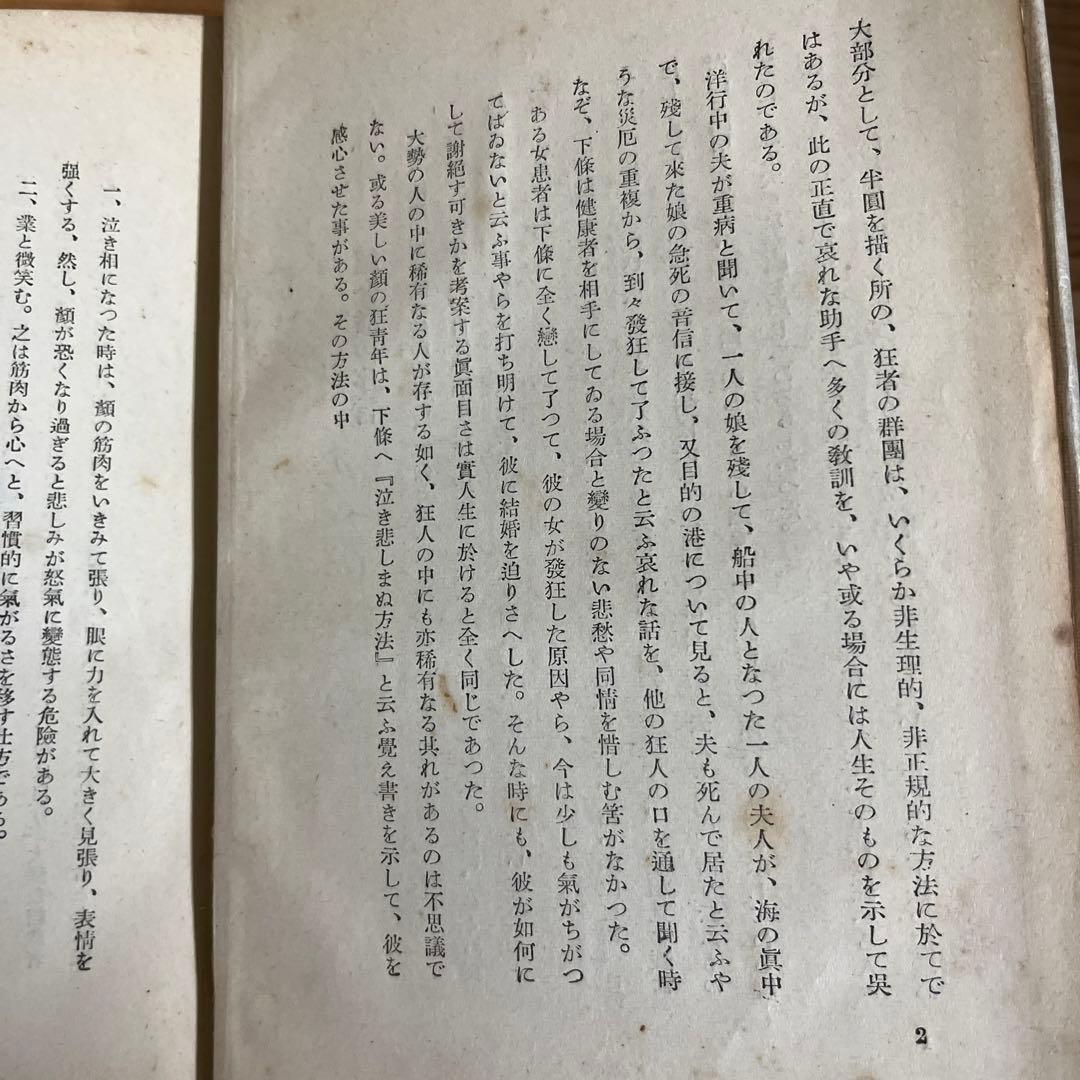 大部分として、半圓を描く所の、狂者の群團は、いくらか非生理的、非正規的な方法に於てで
はあるが、此の正直で哀れな助手へ多くの敎訓を、いや或る場合には人生そのものを示して吳
れたのである。
洋行中の夫が重病と聞いて、一人の娘を殘して、船中の人となつた一人の夫人が、海の眞中
で、殘して來た娘の急死の音信に接し、又目的の港について見ると、夫も死んで居たと云ふや
うな災厄の重複から、到々發狂して了ふつたと云ふ哀れな話を、他の狂人の口を通して聞く時
なぞ、下條は健康者を相手にしてゐる場合と變りのない悲愁や同情を惜しむ筈がなかつた。
ある女患者は下條に全く戀して了つて、彼の女が發狂した原因やら、今は少しも氣がちがつ
てばゐないと云ふ事やらを打ち明けて、彼に結婚を迫りさへした。そんな時にも、彼が如何に
して謝絕す可きかを考案する眞面目さは實人生に於けると全く同じであつた。
大勢の人の中に稀有なる人が存する如く、狂人の中にも亦稀有なる其れがあるのは不思議で
ない。或る美しい顏の狂靑年は、下條へ『泣き悲しまぬ方法』と云ふ覺え書きを示して、彼を
感心させた事がある。その方法の中
2
一、泣き相になつた時は、顏の筋肉をいきみて張り、眼に力を入れて大きく見張り、表情を
强くする、然し、顏が恐くなり過ぎると悲しみが怒氣に變態する危險がある。
二、業と微笑む。之は筋肉から心へと、習慣的に氣がるさを移す仕方である。